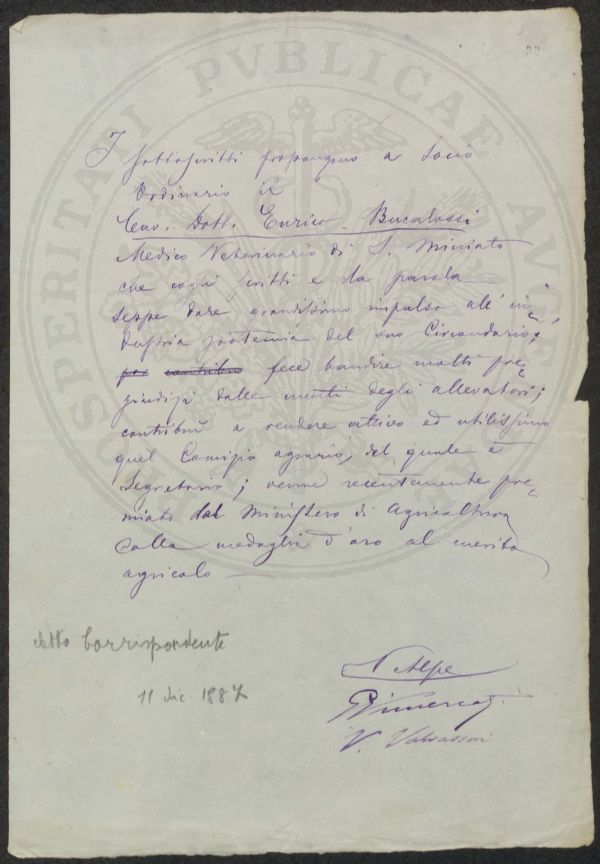 22
I sottoscritti propongono a Socio
Ordinario il
Cav. Dott. Enrico Bucalossi
Medico Veterinario di S. Miniato
che cogli scritti e la parola
seppe dare grandissimo impulso all'in=
dustria zootecnia del suo Circondario;
per contribuì fece bandire molti pre=
giudizi dalle menti degli allevatori;
contribuì a rendere attivo ed utilissimo
quel Comizio agrario, del quale è
Segretario; venne recentemente pre=
miato dal Ministero di Agricoltura
colla medaglia d'oro al merito
agricolo
Corrispondente
11 dic. 1887
V. Alpe
Vimercati
V. Valvassori
PROSPERITATI PVBLICAE AVGENDAE